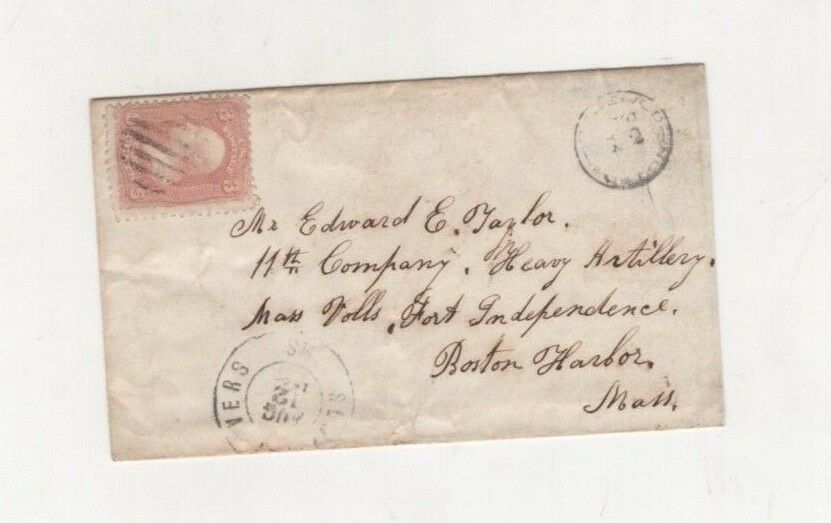 Mr Edward E. Taylor.
11th Company, Heavy Artillery.
Mass Volls, Fort Independence.
Boston Harbor.
Mass.
VERS
AUG
3
3